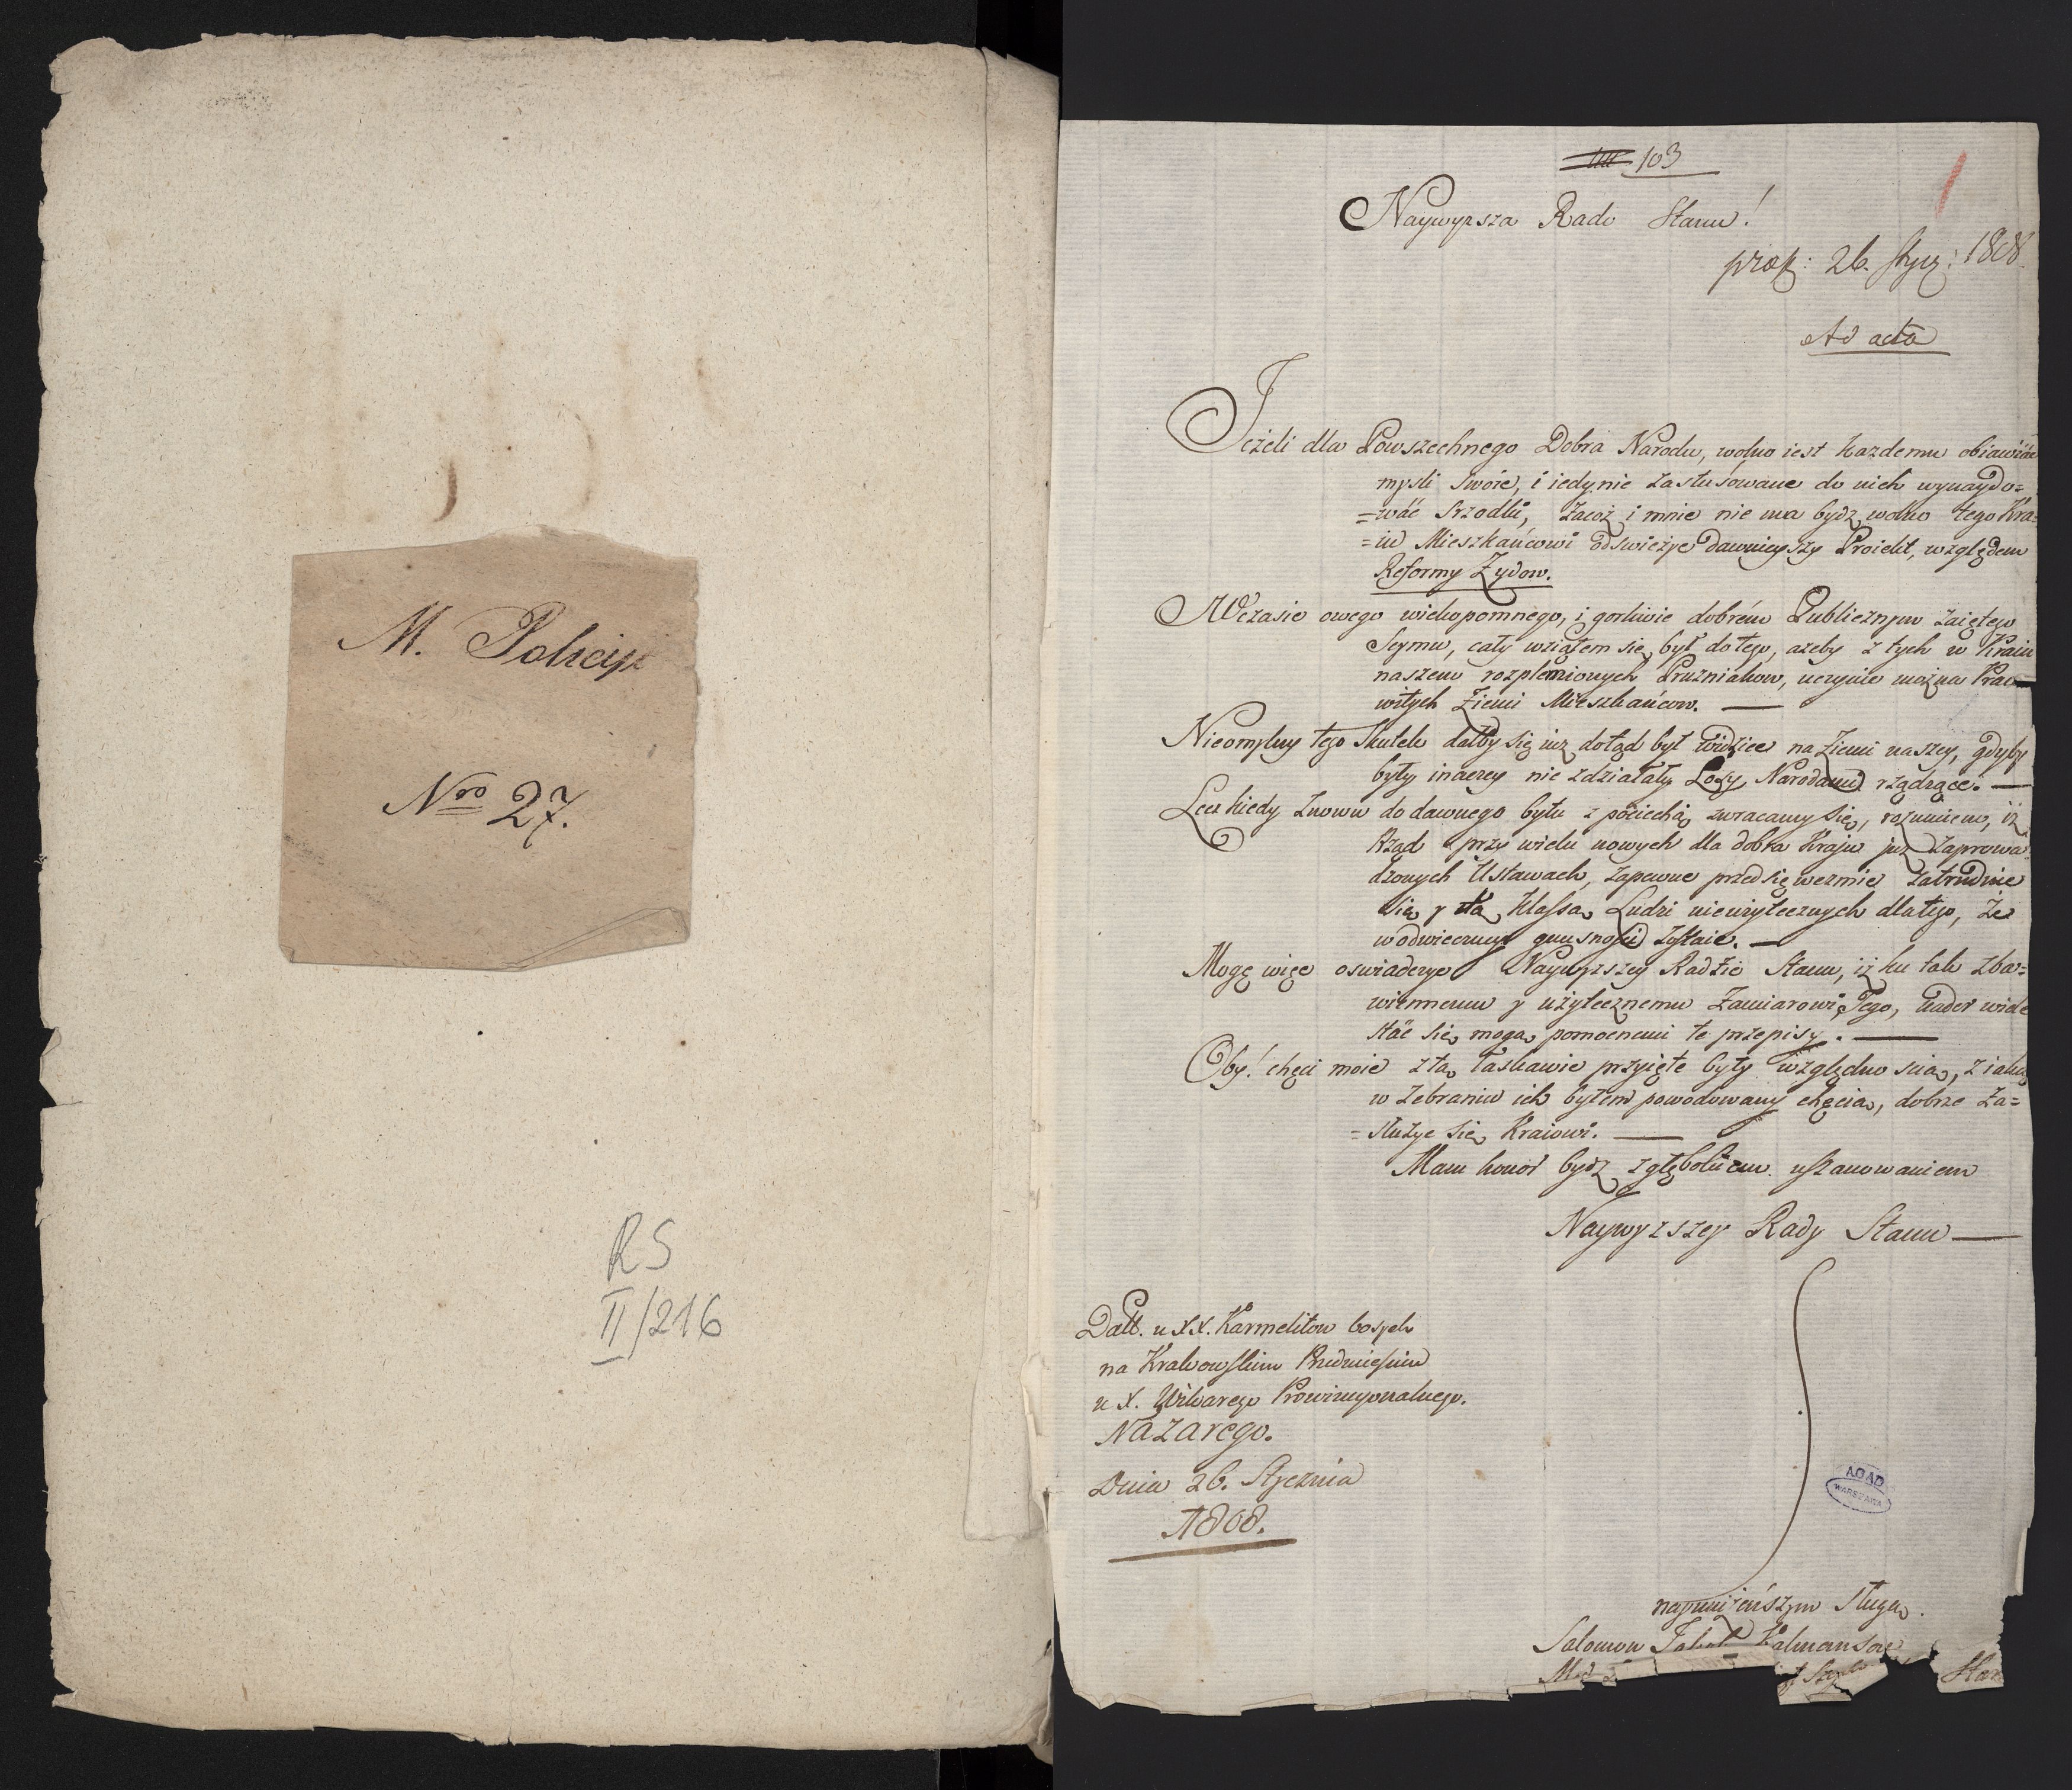 M. Policyi
Nro 27.
RS
II/216
103
1
Naywyższa Rado Stanu!
26. Stycz: 1808
Ad acta
Jeżeli dla Powszechnego Dobra Narodu, wolno iest każdemu obiawiać
mysli swoie, i iedynie zastusowane do nich wynaydo=
=wać srzodki, zacoż i mnie nie ma bydz wolno tego Kra=
=iu Mieszkańcowi odswieżyc dawnieyszy Proiekt, względem
Reformy Zydow.
W czasie owego wiekopomnego, i gorliwie dobrém Publicznym zaiętego
Seymu, cały wziąłem się był do tego, azeby z tych w Kraiu
naszem rozplemionych Pruzniakow, uczynic można Praco
witych Ziemi Mieszkańcow. —
Nieomylny tego Skutek dałby się iuz dotąd był widziec na Ziemi naszey, gdyby
były inaczey nie zdziałały Losy Narodami rządzące. —
Lecz kiedy znowu do dawnego bytu z pociechą zwracamy się, rozumiem, iż
Rząd przy wielu nowych dla dobra Kraju już zaprowa=
dzonych Ustawach, zapewne przedsięwezmie zatrudnic
się y tą Klassą Ludzi nieużytecznych dlatego, że
w odwieczney gnusnosci zostaie. —
Mogę więc oswiadczyc Naywyższey Radzie Stanu, iż ku tak zba=
wiennemu y użytecznemu Zamiarowi Tego, nader wiele
stać się mogą pomocnemi te przepisy. —
Oby! chęci moie z tą łaskawie przyięte były względnoscią, z iaką
w zebraniu ich byłem powodowany chęcią, dobrze za=
=służyc się Kraiowi. —
Mam honor bydz z głębokiem uszanowaniem
Naywyższey Rady Stanu —
Datt. u XX. Karmelitow bosych
na Krakowskim Przdmiesciu
u X. Prowincyonalnego.
Nazarego.
Dnia 26. Stycznia
1808.
AGAD
WARSZAWA
naymnieyszym Sługą.
Salomon Kalmanson